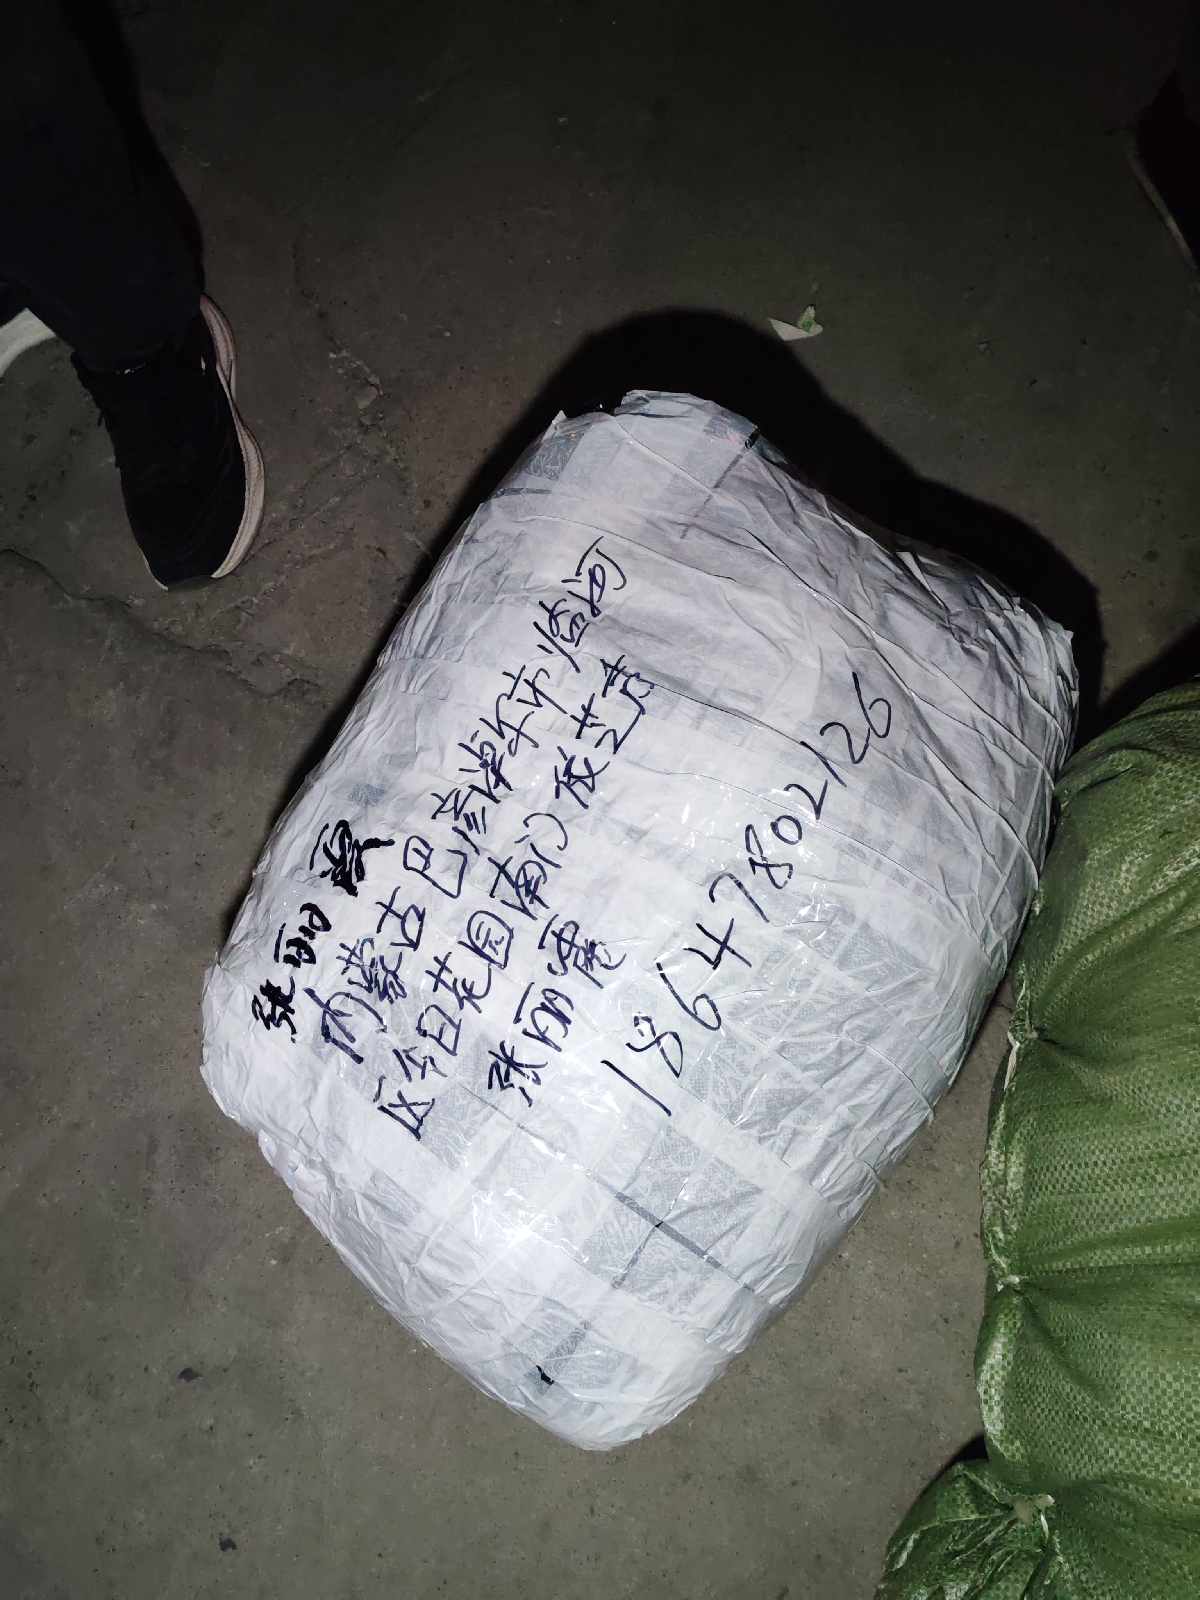 张丽霞
内蒙古巴彦淖尔市临河
区今日花园南心依芝青
张丽霞
18647802126